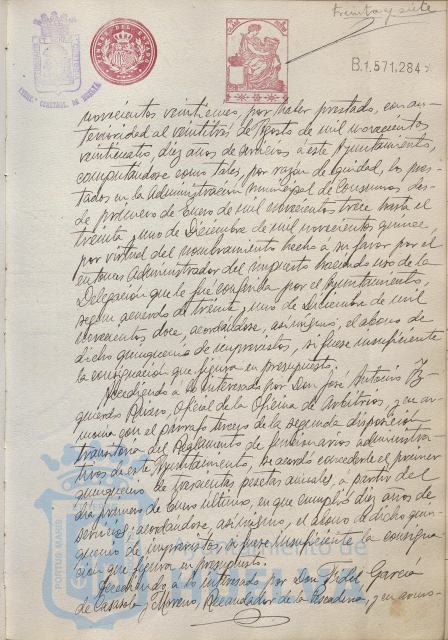 Treinta y siete
TIMBRE DEL ESTADO
B.1.571.284
novecientos veintiuno, por haber prestado, con an-
terioridad al veintitrés de Agosto de mil novecientos
veinticuatro, diez años de servicios a este Ayuntamiento,
computándose como tales, por razón de equidad, los pres-
tados en la Administración municipal de Consumos des-
de primero de Enero de mil novecientos trece hasta el
treinta y uno de Diciembre de mil novecientos quince
por virtud del nombramiento hecho a su favor por el
entonces Administrador del impuesto haciendo uso de la
Delegación que le fue conferida por el Ayuntamiento,
según acuerdo de treinta y uno de Diciembre de mil
novecientos doce, acordándose, asimismo, el abono de
dicho quinquenio de imprevistos, si fuese insuficiente
la consignación que figura en presupuesto.
Accediendo a lo interesado por Don José Antonio Iz-
quierdo Rivero, Oficial de la Oficina de Arbitrios, y en ar-
monía con el párrafo tercero de la segunda disposición
transitoria del Reglamento de funcionarios administra-
tivos de este Ayuntamiento, se acordó concederle el primer
quinquenio de trescientas pesetas anuales, a partir del
día primero de Enero último, en que cumplió diez años de
servicios; acordándose, asimismo, el abono de dicho quin-
quenio de imprevistos, si fuese insuficiente la consigna-
ción que figura en presupuesto.
Accediendo a lo interesado por Don Fidel García
de Casasola y Moreno, Recaudador de la Pescadería, y en armo-
PORTUS MARIS
Ayuntamiento de
HUELVA